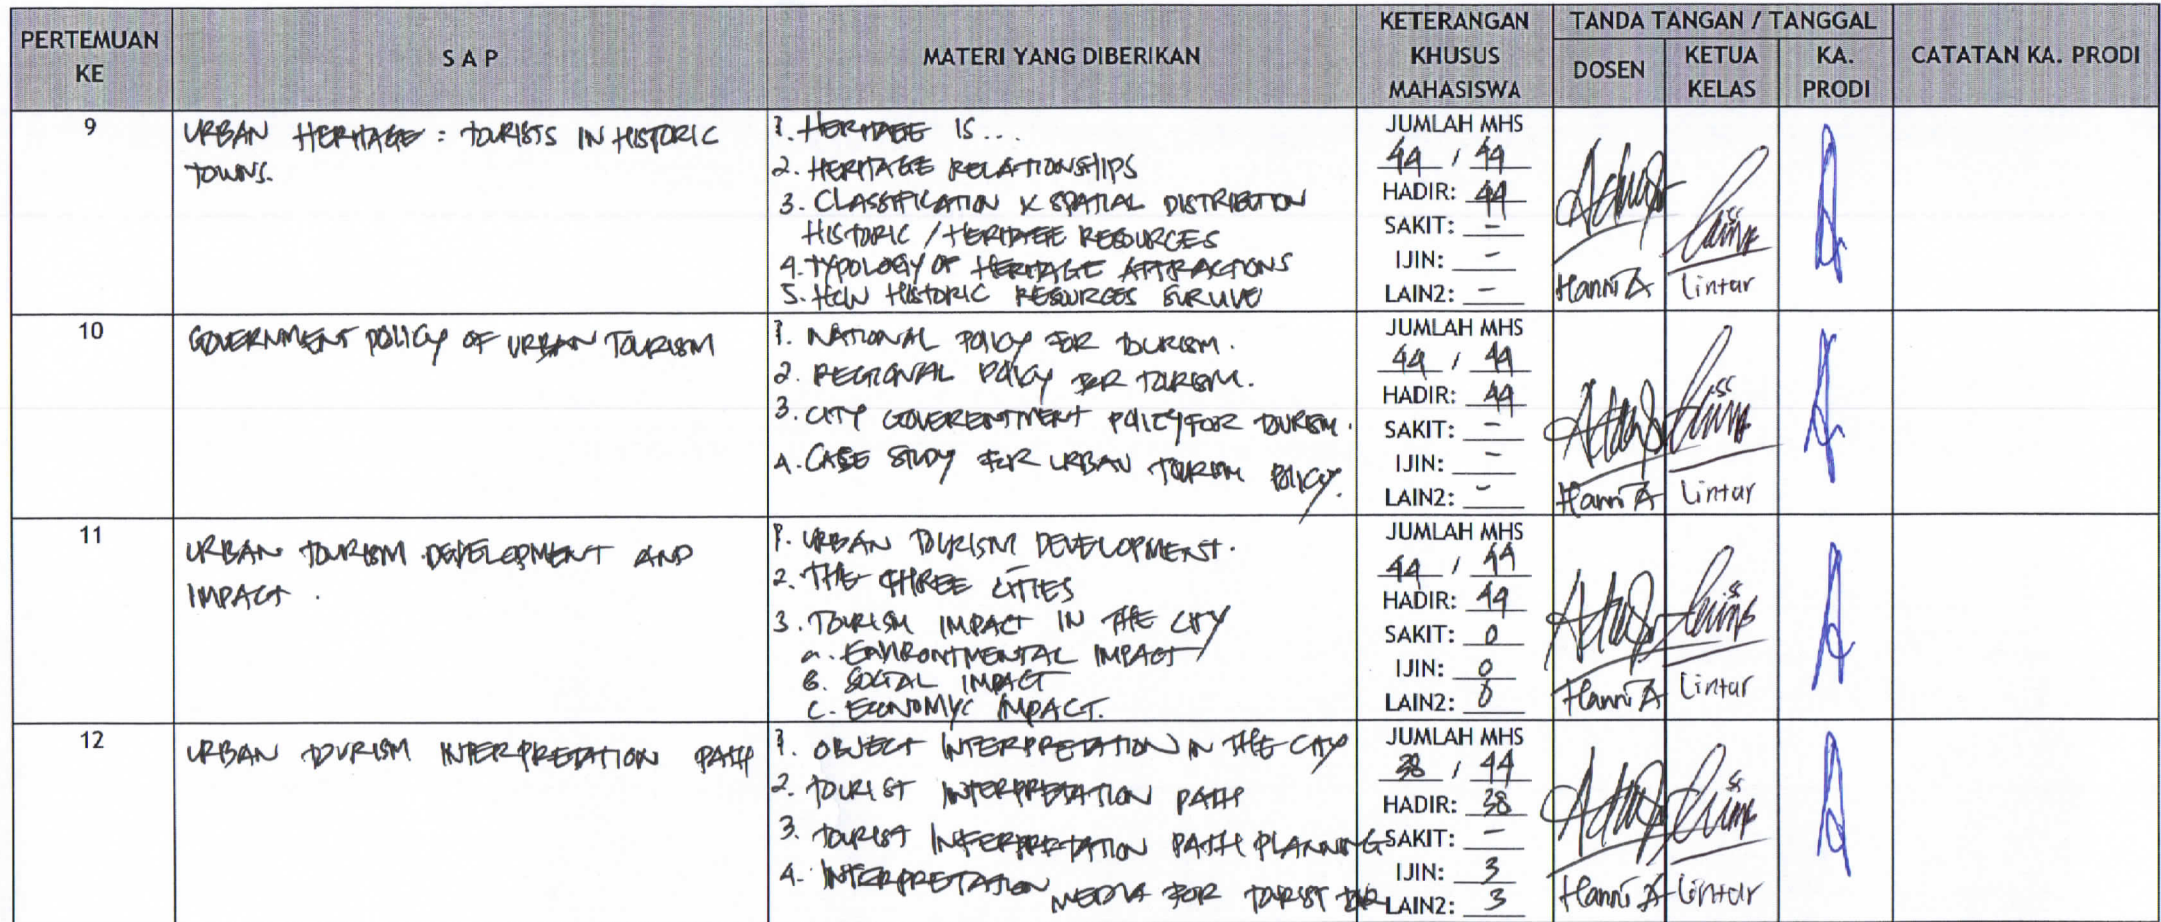 PERTEMUAN KE
S A P
MATERI YANG DIBERIKAN
KETERANGAN KHUSUS MAHASISWA
TANDA TANGAN / TANGGAL
DOSEN
KETUA KELAS
KA. PRODI
CATATAN KA. PRODI
9
URBAN HERITAGE : TOURISTS IN HISTORIC
TOWNS.
1. HERITAGE IS ...
2. HERITAGE RELATIONSHIPS
3. CLASSIFICATION & SPATIAL DISTRIBUTION
HISTORIC / HERITAGE RESOURCES
4. TYPOLOGY OF HERITAGE ATTRACTIONS
5. HOW HISTORIC RESOURCES SURVIVE
JUMLAH MHS
44 / 44
HADIR: 44
SAKIT: -
IJIN: -
LAIN2: -
Hanni A
Lintar
10
GOVERNMENT POLICY OF URBAN TOURISM
1. NATIONAL POLICY FOR TOURISM.
2. REGIONAL POLICY FOR TOURISM.
3. CITY GOVERENTMENT POLICY FOR TOURISM.
4. CASE STUDY FOR URBAN TOURISM POLICY.
JUMLAH MHS
44 / 44
HADIR: 44
SAKIT: -
IJIN: -
LAIN2: -
Hanni A
Lintar
11
URBAN TOURISM DEVELOPMENT AND
IMPACT.
1. URBAN TOURISM DEVELOPMENT.
2. THE THREE CITIES
3. TOURISM IMPACT IN THE CITY
a. ENVIRONTMENTAL IMPACT
B. SOCIAL IMPACT
C. ECONOMYC IMPACT.
JUMLAH MHS
44 / 44
HADIR: 44
SAKIT: 0
IJIN: 0
LAIN2: 0
Hanni A
Lintar
12
URBAN TOURISM INTERPRETATION PATH
1. OBJECT INTERPRETATION IN THE CITY
2. TOURIST INTERPRETATION PATH
3. TOURIST INTERPRETATION PATH PLANNING
4. INTERPRETATION MEDIA FOR TOURIST TOUR
JUMLAH MHS
38 / 44
HADIR: 38
SAKIT: -
IJIN: 3
LAIN2: 3
Hanni A
Lintar